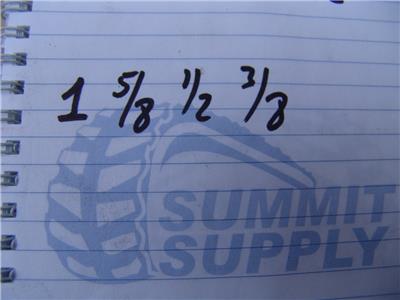 1 5/8 1/2 3/8
SUMMIT
SUPPLY